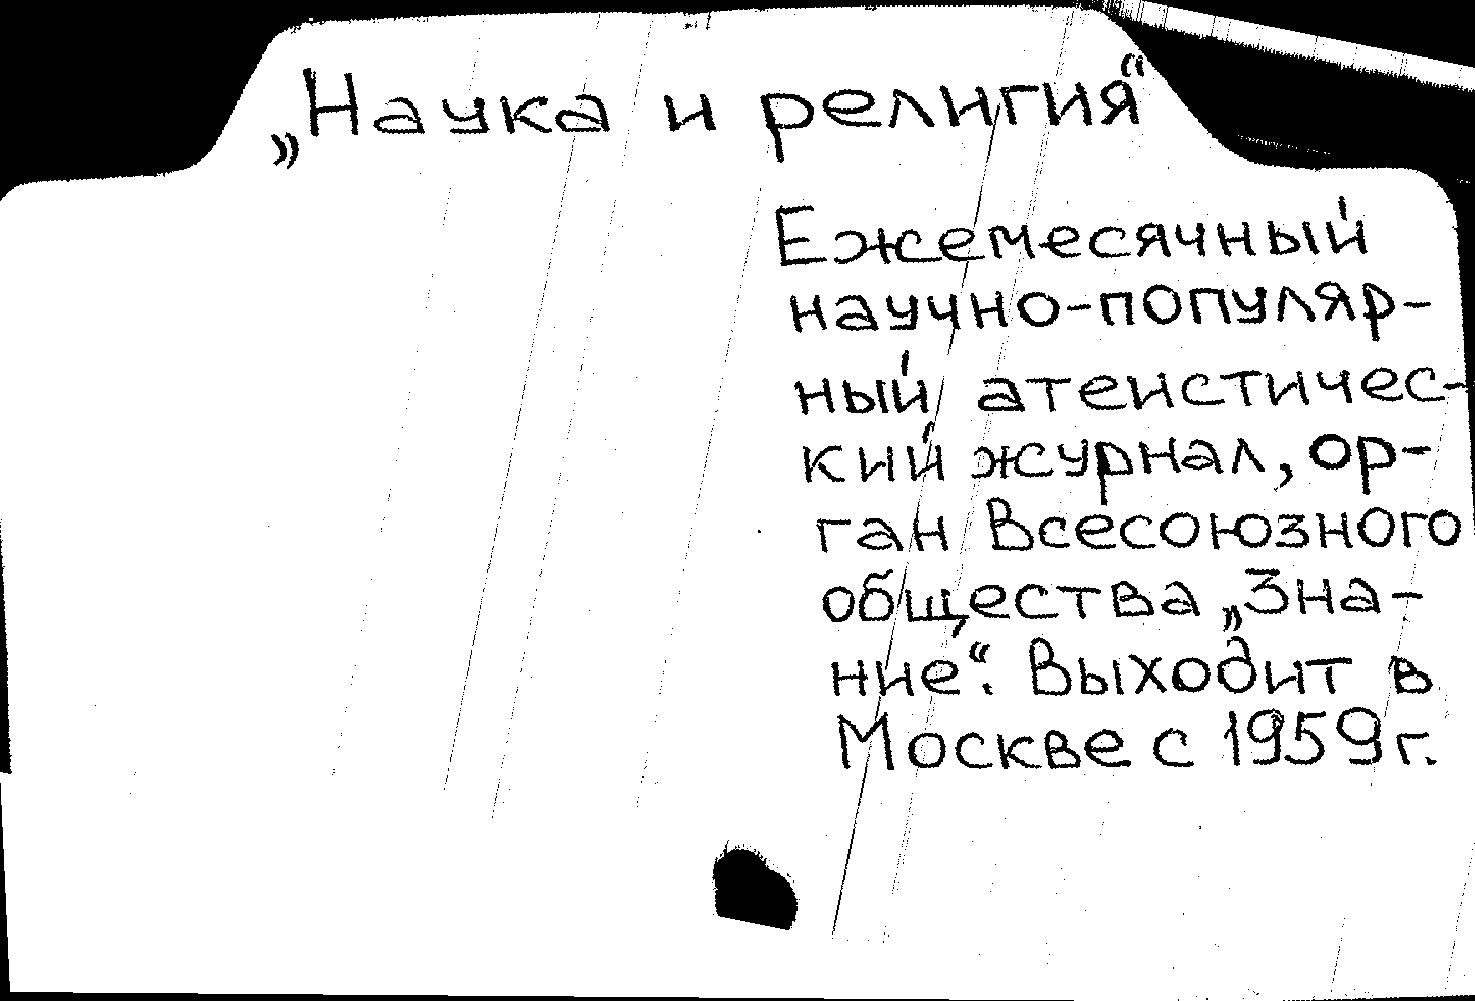 „Наука и религия“
Ежемесячный
научно-популяр-
ный атеистичес-
кий журнал, ор-
ган Всесоюзного
общества „Зна-
ние“. Выходит в
Москве с 1959 г.